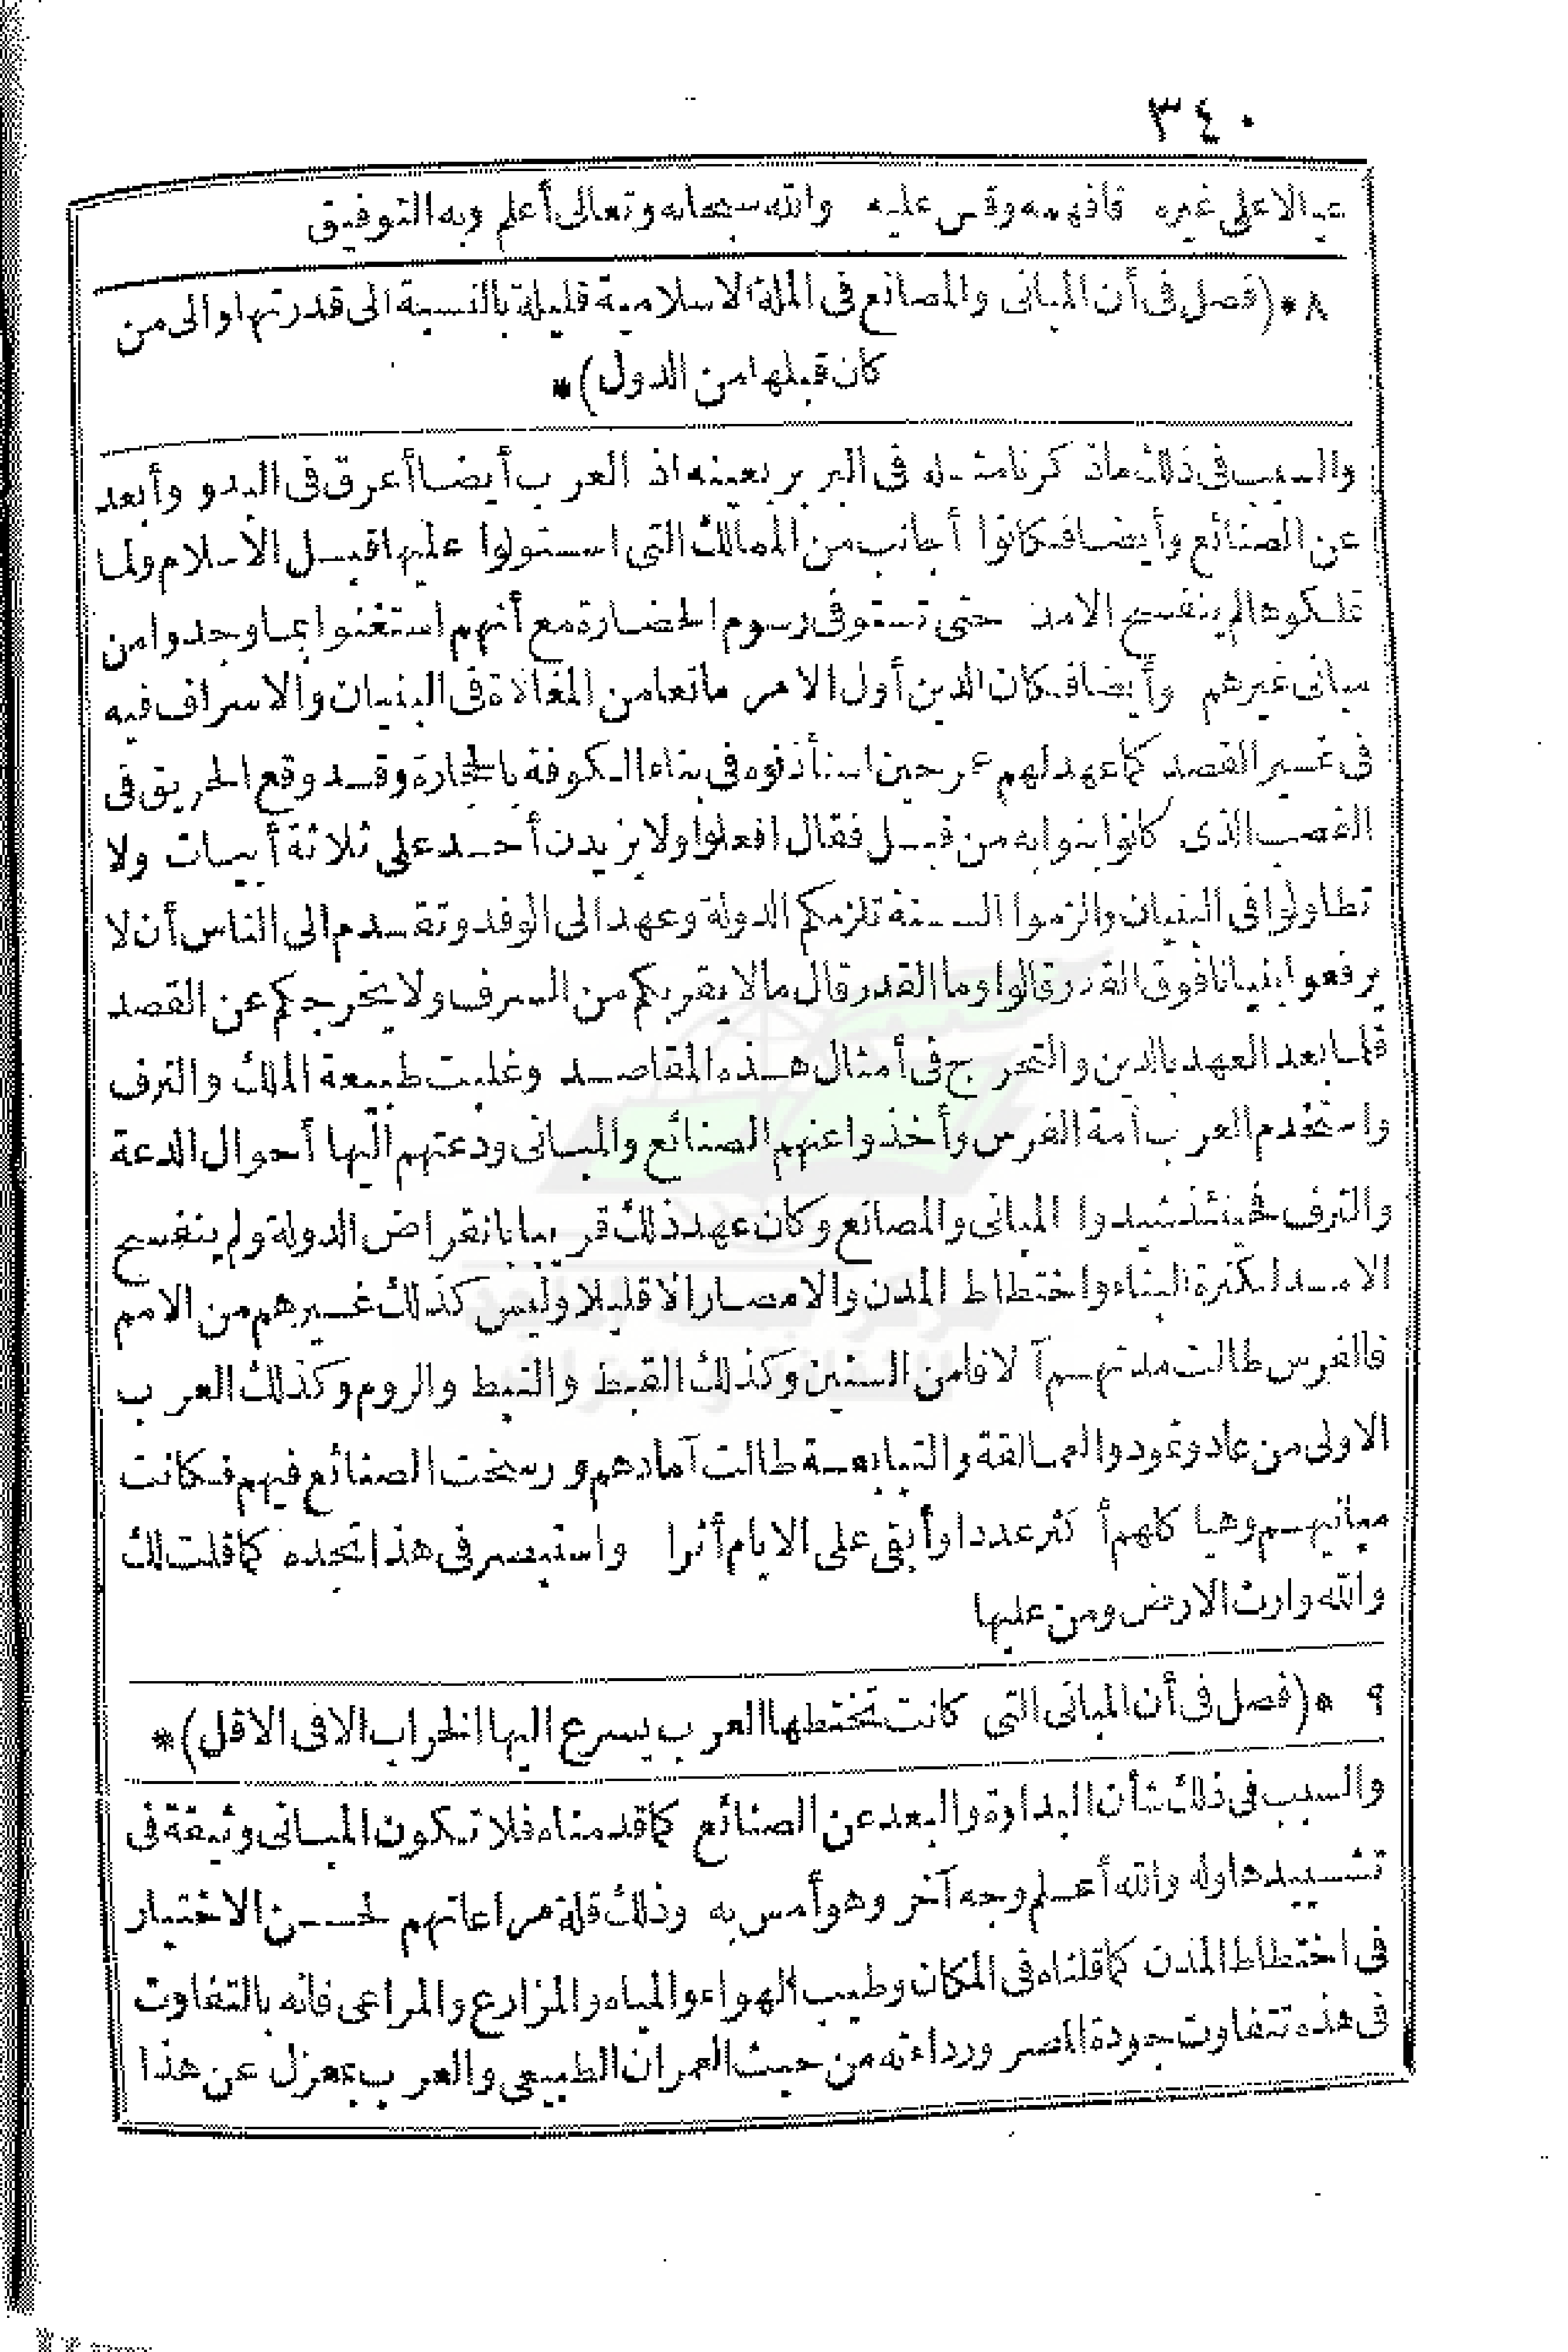 ٣٤٠
عيالا على غيره فافهمه وقس عليه والله سبحانه وتعالى أعلم وبه التوفيق
٨ *(فصل فى أن المبانى والمصانع فى الملة الاسلامية قليلة بالنسبة الى قدرتها والى من
كان قبلها من الدول)*
والسبب فى ذلك ماذكرنا مثله فى البربر بعينه اذ العرب أيضا أعرق فى البدو وأبعد
عن الصنائع وأيضا فكانوا أجانب من الممالك التى استولوا عليها قبل الاسلام ولما
تملكوها لم ينفسح الامد حتى تستوفى رسوم الحضارة مع أنهم استغنوا بما وجدوا من
مبانى غيرهم وأيضا فكان الدين أول الامر مانعا من المغالاة فى البنيان والاسراف فيه
فى غير القصد كما عهد لهم عمر حين استأذنوه فى بناء الكوفة بالحجارة وقد وقع الحريق فى
القصب الذى كانوا بنوا به من قبل فقال افعلوا ولا يزيدن أحد على ثلاثة أبيات ولا
تطاولوا فى البنيان والزموا السنة تلزمكم الدولة وعهد الى الوفد وتقدم الى الناس أن لا
يرفعوا بنيانا فوق القدر قالوا وما القدر قال مالا يقربكم من السرف ولا يخرجكم عن القصد
فلما بعد العهد بالدين والتحرج فى أمثال هذه المقاصد وغلبت طبيعة الملك والترف
واستخدم العرب أمة الفرس وأخذوا عنهم الصنائع والمبانى ودعتهم اليها أحوال الدعة
والترف فحينئذ شيدوا المبانى والمصانع وكان عهد ذلك قريبا بانقراض الدولة ولم ينفسح
الامد لكثرة البناء واختطاط المدن والامصار الا قليلا وليس كذلك غيرهم من الامم
فالفرس طالت مدتهم آلافا من السنين وكذلك القبط والنبط والروم وكذلك العرب
الاولى من عاد وثمود والعمالقة والتبابعة طالت آمادهم ورسخت الصنائع فيهم فكانت
مبانيهم وهياكلهم أكثر عددا وأبقى على الايام أثرا واستبصر فى هذا تجده كما قلت لك
والله وارث الارض ومن عليها
٩ *(فصل فى أن المبانى التى كانت تختطها العرب يسرع اليها الخراب الا فى الاقل)*
والسبب فى ذلك شأن البداوة والبعد عن الصنائع كما قدمناه فلا تكون المبانى وثيقة فى
تشييدها وله والله أعلم وجه آخر وهو أمس به وذلك قلة مراعاتهم لحسن الاختيار
فى اختطاط المدن كما قلناه فى المكان وطيب الهواء والمياه والمزارع والمراعى فانه بالتفاوت
فى هذه تتفاوت جودة المصر ورداءته من حيث العمران الطبيعى والعرب بمعزل عن هذا